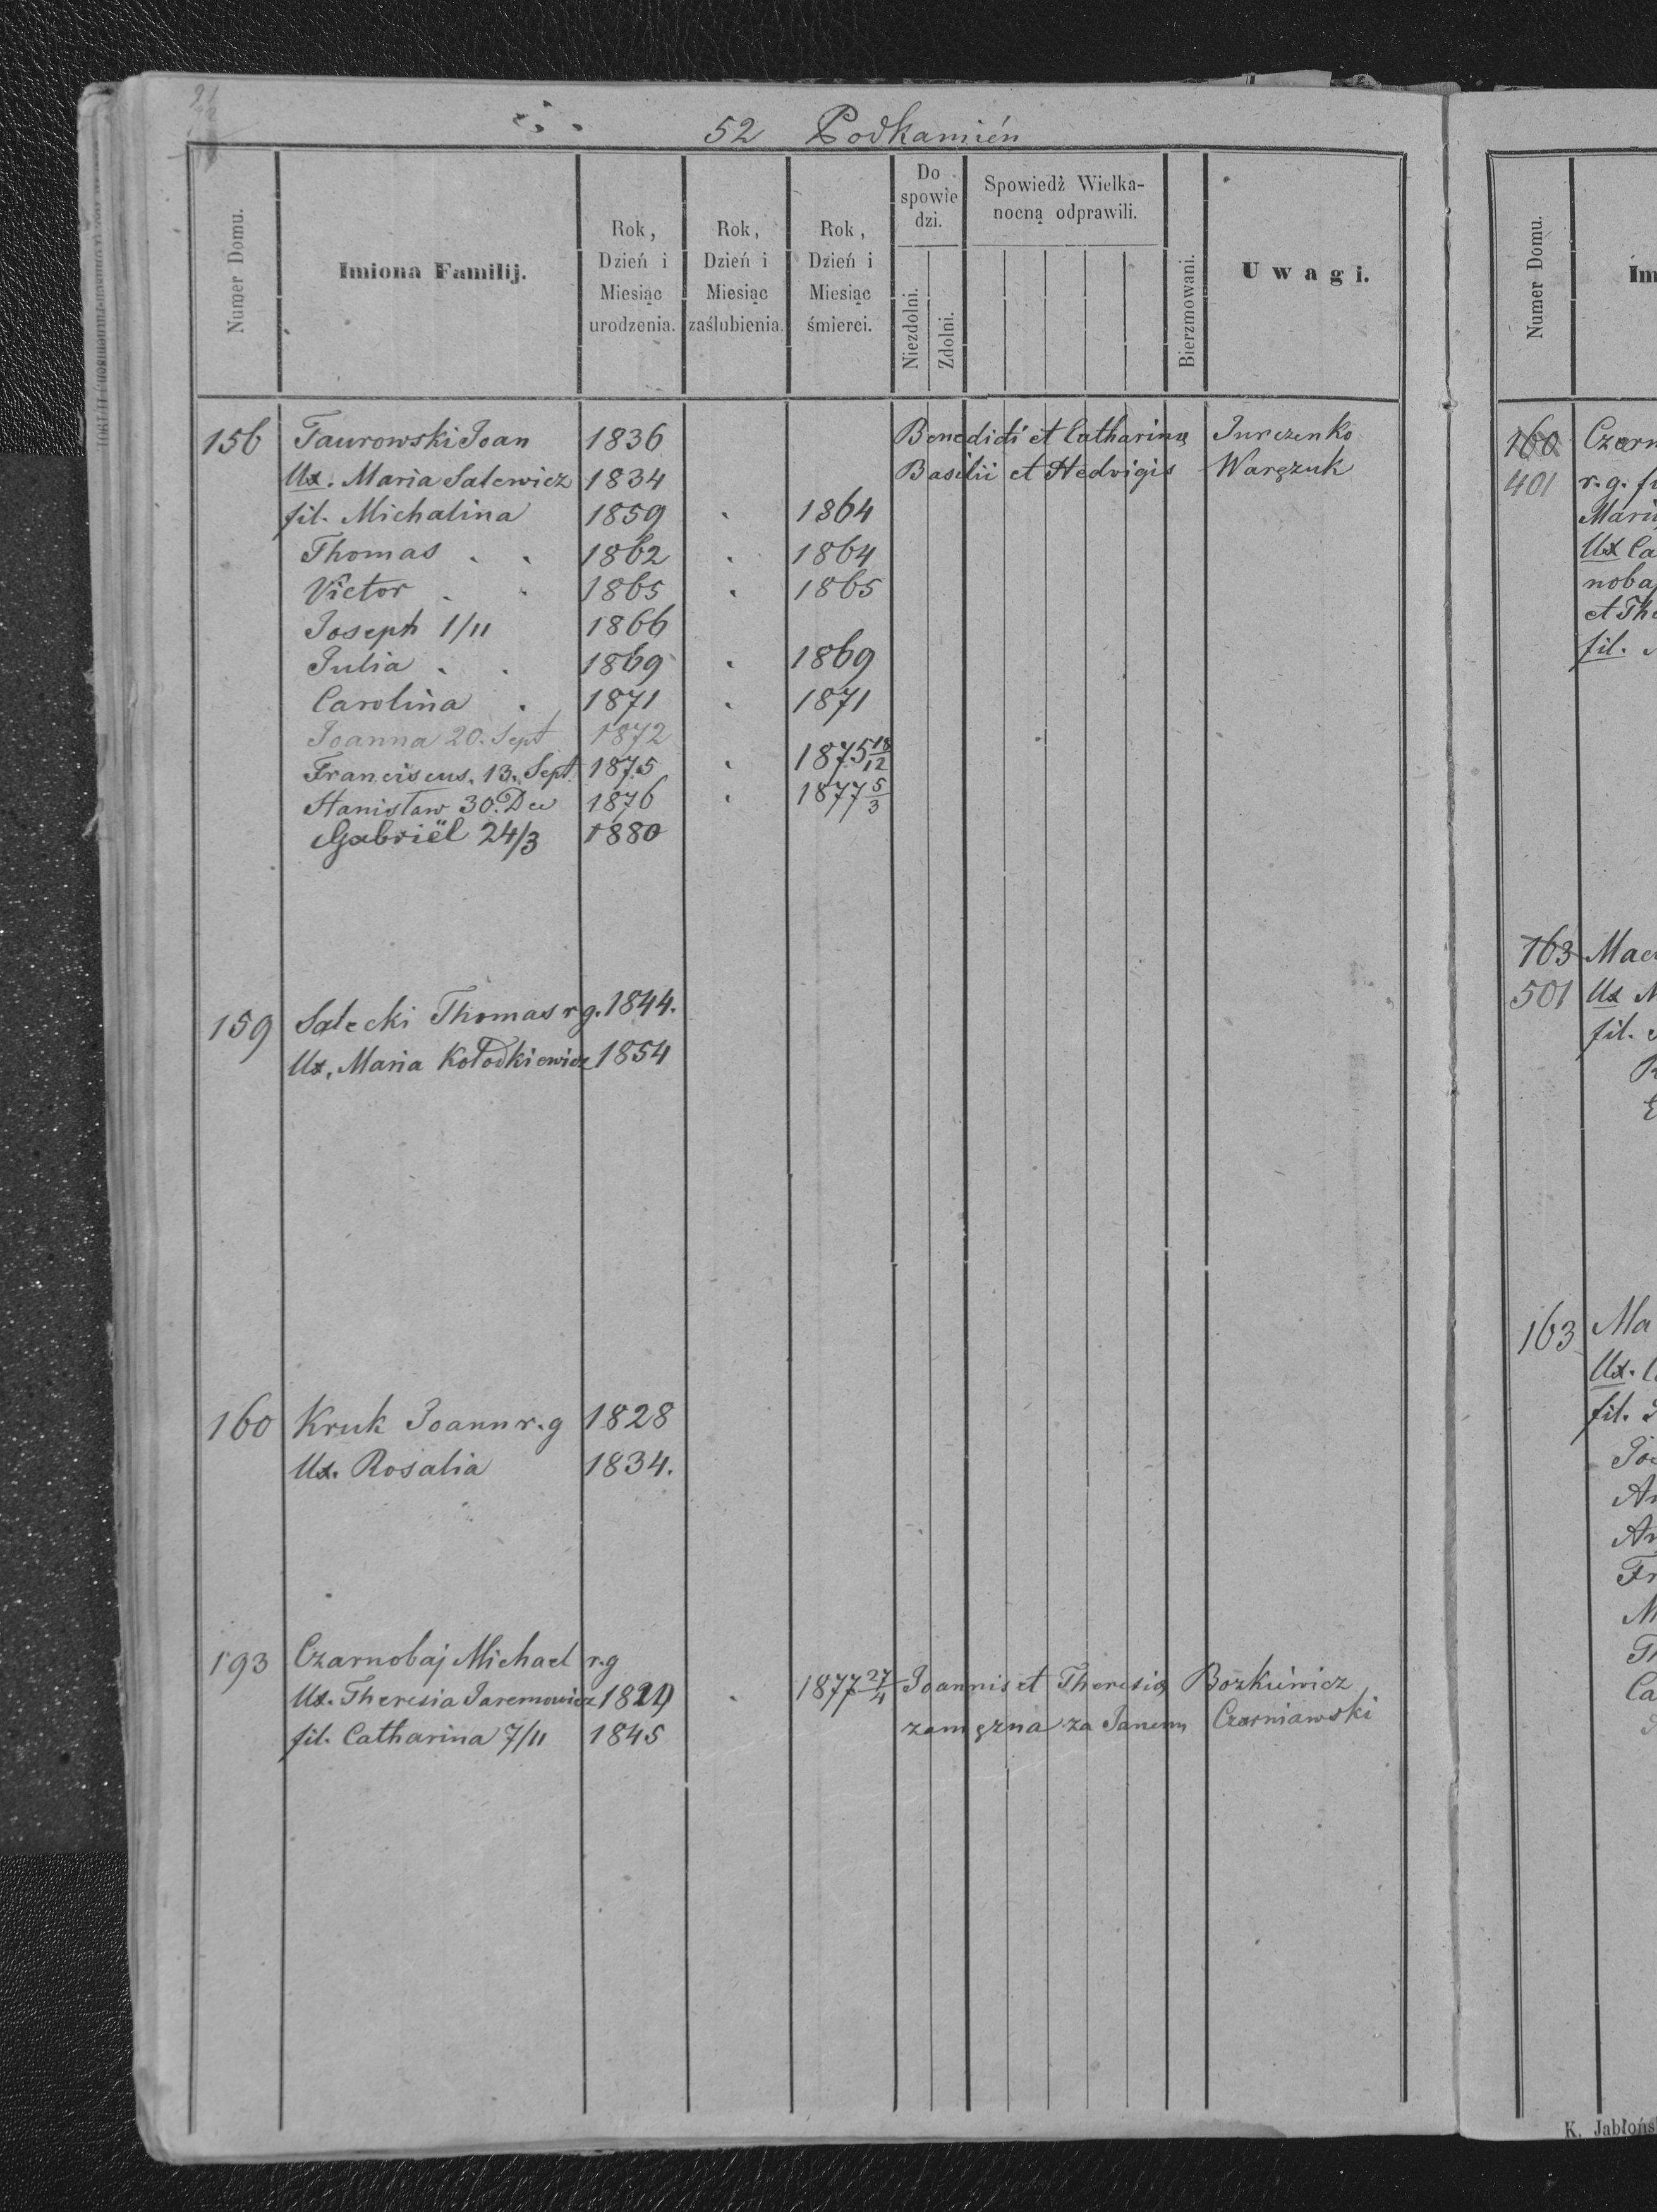 52 Podkamień
Numer Domu.
Imiona Familij.
Rok, Dzień i Miesiąc urodzenia.
Rok, Dzień i Miesiąc zaślubienia.
Rok, Dzień i Miesiąc śmierci.
Do spowiedzi.
Niezdolni.
Zdolni.
Spowiedź Wielkanocną odprawili.
Bierzmowani.
Uwagi.
156 Taurowski Joan 1836 Benedicti et Catharinę Jurczenko
Ux. Maria Salewicz 1834 Basilii et Hedvigis Waręzuk
fil. Michalina 1859 1864
Thomas 1862 1864
Victor 1865 1865
Joseph 1/11 1866
Julia 1869 1869
Carolina 1871 1871
Joanna 20. Sept 1872
Franciscus. 13. Sept. 1875 1875 18/12
Stanisław 30. Dec 1876 1877 5/3
Gabriël 24/3 1880
159 Salecki Thomas r g. 1844.
Ux. Maria Kołodkiewicz 1854
160 Kruk Joann r. g 1828
Ux. Rosalia 1834.
193 Czarnobaj Michael r. g
Ux. Theresia Jaremowicz 1877 27/4 Joannis et Theresię Bozkiewicz
fil. Catharina 7/11 1845 zamęzna za Janem Czarniawski
Numer Domu.
Im
160 Czarn
401 r. g. fi
Mari
Ux Ca
noba
et Th
fil.
163 Mac
501 Ux M
fil.
163 Ma
Ux.
fil.
Jo
An
An
Fr
M
Th
Ca
K. Jabłońs